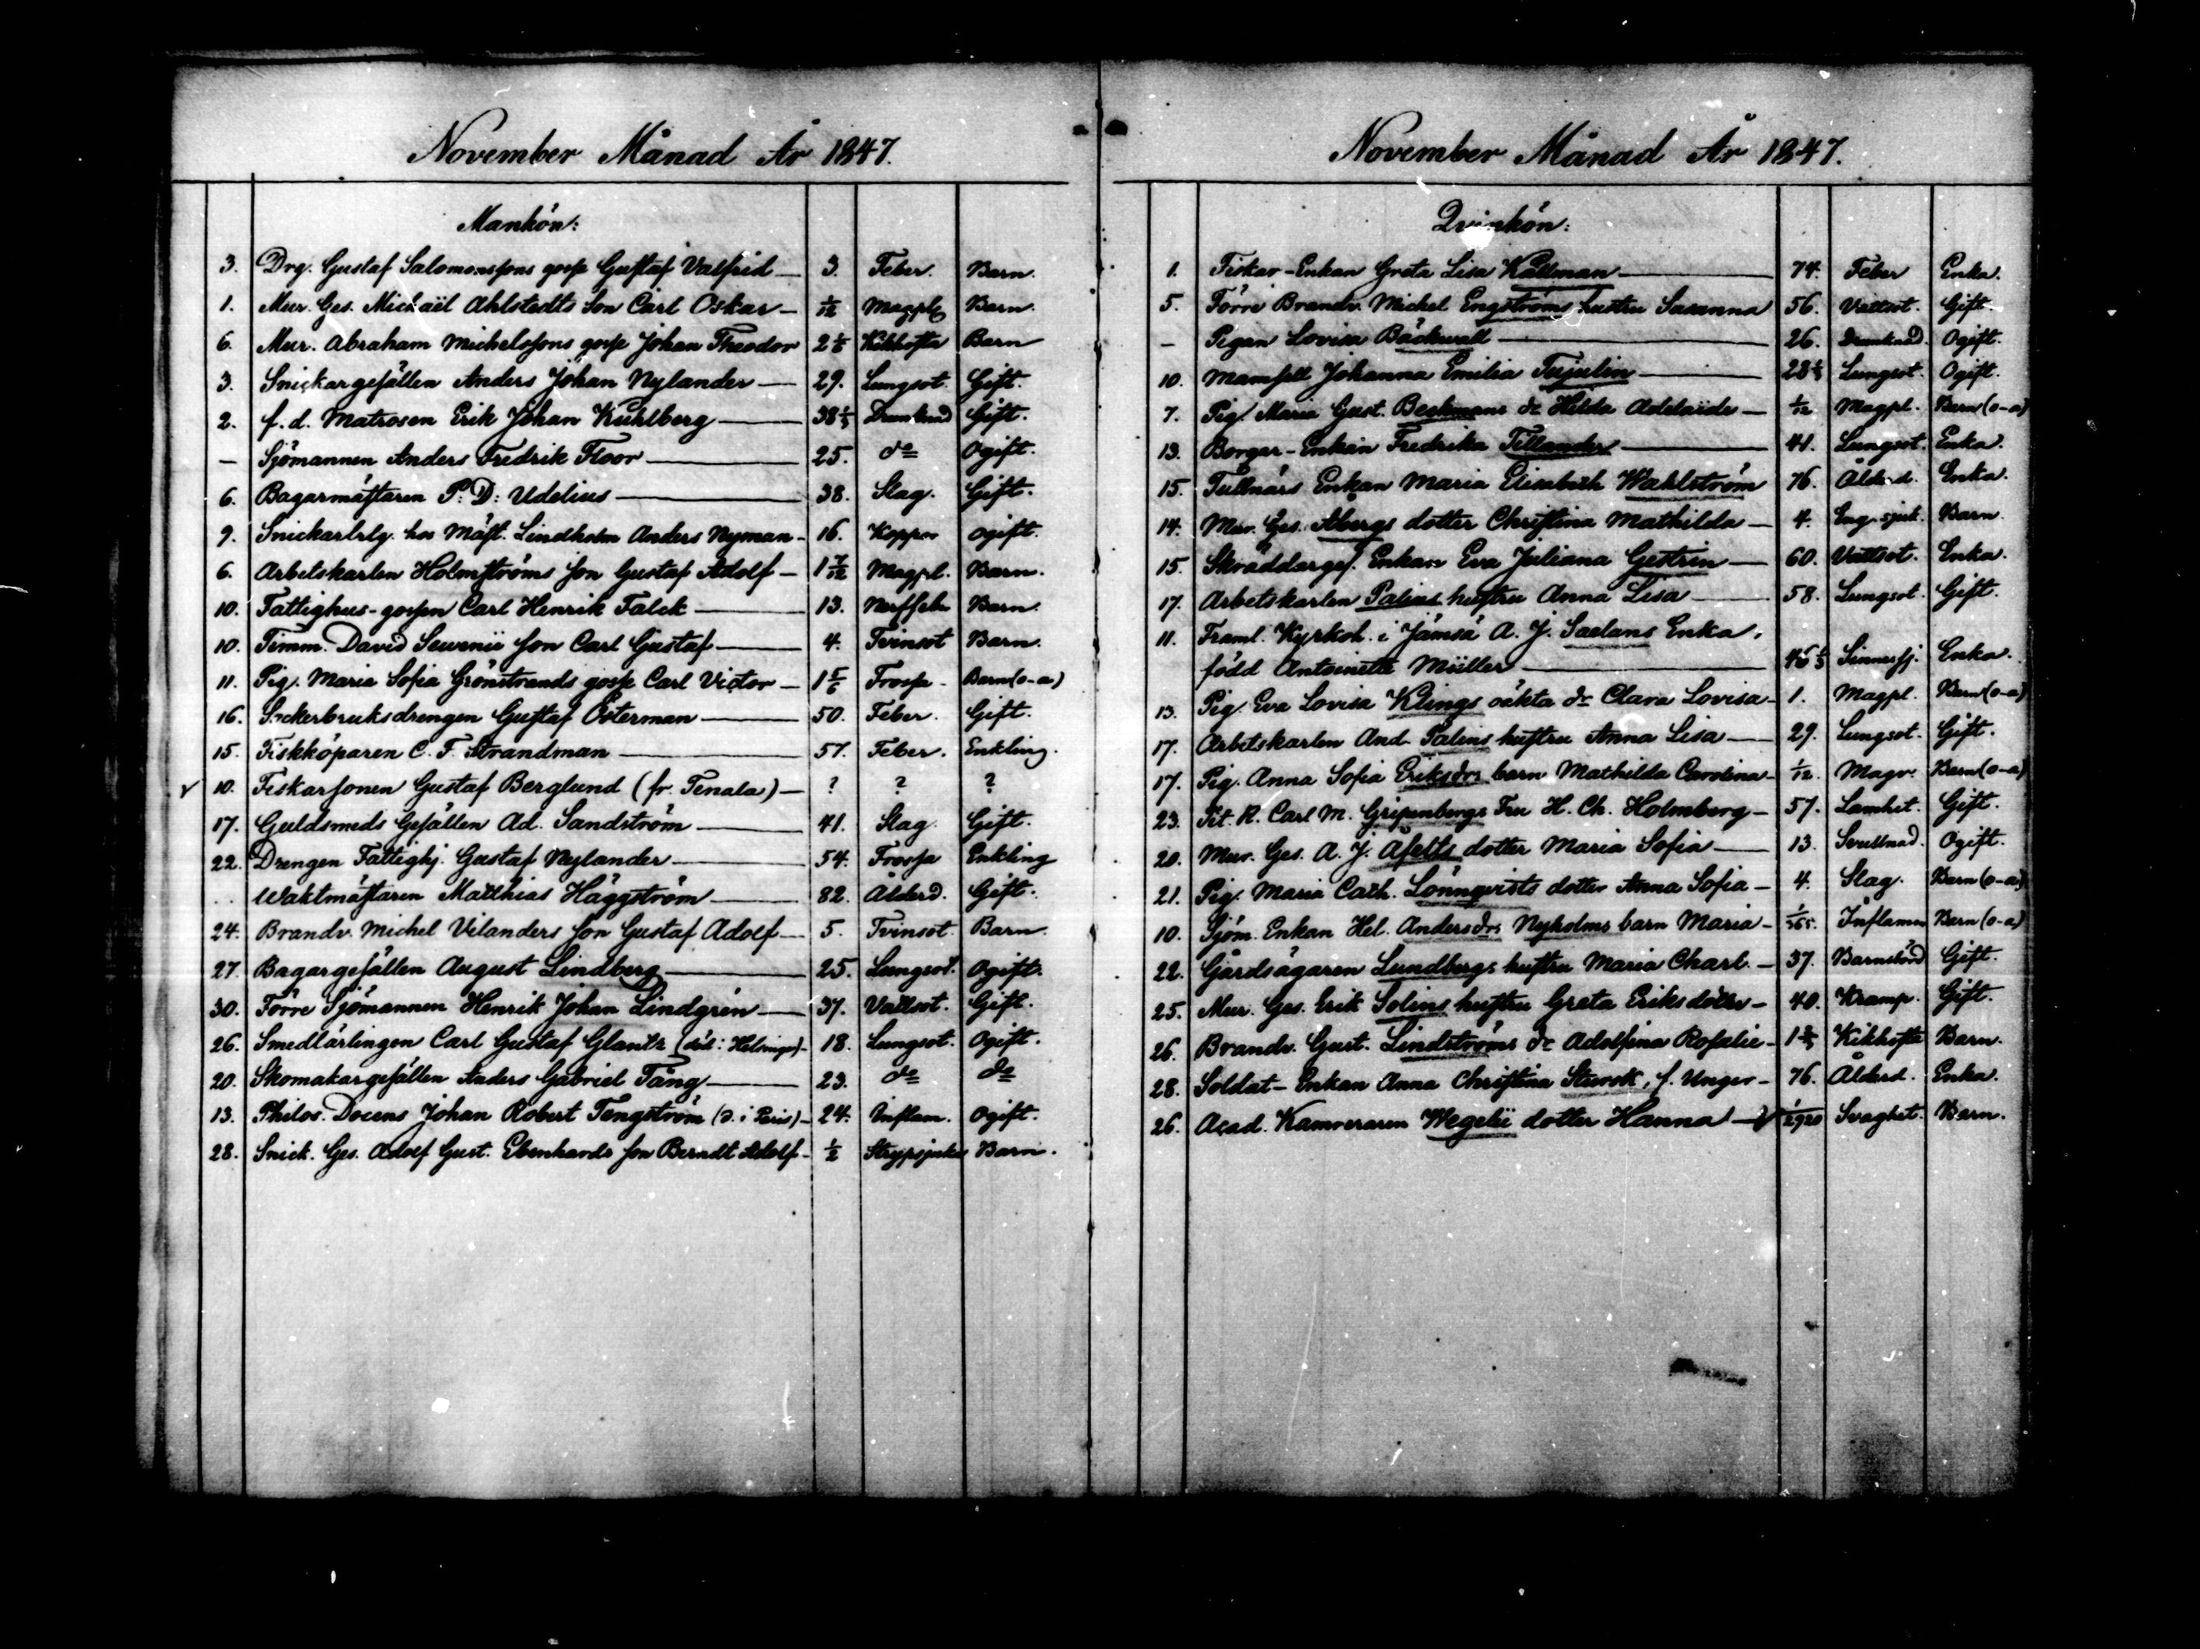 November Månad År 1847.
Mankön:
3. Drg. Gustaf Salomonssons gosse Gustaf Valfrid — 3. Feber. Barn.
1. Mur. Ges. Michaël Ahlstedts Son Carl Oskar — 1/12 Magpl. Barn.
6. Mur. Abraham Michelssons gosse Johan Theodor 2 1/6 Kikhosta Barn
3. Snickargesällen Anders Johan Nylander — 29. Lungsot. Gift.
2. f. d. Matrosen Erik Johan Kuhlberg — 38 Drunknad Gift.
— Sjömannen Anders Fredrik Floor — 25. do Ogift.
6. Bagarmästaren P: D: Udelius — 38. Slag. Gift.
9. Snickarlrlg. hos Mäst. Lindholm Anders Nyman - 16. Koppor ogift.
6. Arbetskarlen Holmströms son Gustaf Adolf — 1 7/12 Magpl. Barn.
10. Fattighus-gossen Carl Henrik Falck — 13. Nerffeber Barn.
10. Timm. David Sevenii son Carl Gustaf — 4. Tvinsot Barn.
11. Pig. Maria Sofia Grönstrands gosse Carl Victor — 1 5/6 Frossa - Barn (o-ä)
16. Sockerbruksdrengen Gustaf Österman — 50. Feber. Gift.
15. Fiskköparen C. F. Strandman — 57. Feber. Enkling.
✓ 10. Fiskarsonen Gustaf Berglund (fr. Tenala) — ? ? ?
17. Guldsmeds Gesällen Ad. Sandström — 41. Slag. Gift.
22. Drengen Fattighj. Gustaf Nylander — 54. Frossa Enkling
.. Waktmästaren Matthias Häggström — 82. Ålderd. Gift.
24. Brandv. Michel Vilanders son Gustaf Adolf — 5. Tvinsot. Barn.
27. Bagargesällen August Lindberg — 25. Lungsot. Ogift.
30. Förre Sjömannen Henrik Johan Lindgrén — 37. Vattsot. Gift.
26. Smedlärlingen Carl Gustaf Glantz (död i Helsingf.) - 18. Lungsot. Ogift.
20. Skomakargesällen Anders Gabriel Tång — 23. do do
13. Philos. Docens Johan Robert Tengström (d. i Paris) - 24. Inflam. Ogift.
28. Snick. Ges. Adolf Gust. Ebenhards son Berndt Adolf - 1/2 Strypsjuka Barn.
November Månad År 1847.
Qvinkön:
1. Fiskar-Enkan Greta Lisa Källman — 74. Feber Enka.
5. Förre Brandv. Michel Engströms hustru Susanna 56. Vattsot. Gift.
— Pigan Lovisa Bäckvall — 26. Drunknad. Ogift.
10. Mamsell Johanna Emilia Tujulin — 28 Lungsot. Ogift.
7. Pig. Maria Gust. Beckmans dr Hilda Adelaide — 1/12 Magpl. Barn (o-ä)
13. Borgar-Enkan Fredrika Tillander — 41. Lungsot. Enka.
15. Tullnärs Enkan Maria Elisabeth Wahlström 76. Ålderd. Enka.
14. Mur. Ges. Åbergs dotter Christina Mathilda — 4. Eng. sjuk. Barn
15. Skräddargef. Enkan Eva Juliana Gestrin — 60. Vattsot. Enka.
17. Arbetskarlen Palins hustru Anna Lisa — 58. Lungsot. Gift.
11. Framl. Kyrkoh. i Jämsä A. J. Saelans Enka,
född Antoinette Müller — Sinnessj. Enka.
13. Pig. Eva Lovisa Klings oäkta dr Clara Lovisa - 1. Magpl. Barn (o-ä)
17. Arbetskarlen And. Palins hustru Anna Lisa — 29. Lungsot. Gift.
17. Pig. Anna Sofia Eriksdrs barn Mathilda Carolina - 1/12. Magr. Barn (o-ä)
23. Tit. R. Carl M. Gripenbergs Fru H. Ch. Holmberg — 57. Lamhet. Gift.
20. Mur. Ges. A. J. Åfelts dotter Maria Sofia — 13. Svullnad. Ogift.
21. Pig. Maria Cath. Lönnqvists dotter Anna Sofia — 4. Slag. Barn (o-ä)
10. Sjöm. Enkan Hel. Andersdrs Nyholms barn Maria - 1/365. Inflamm Barn (o-ä)
22. Gårdsägaren Lundbergs hustru Maria Charl. — 37. Barnsbörd Gift.
25. Mur. Ges. Erik Solins hustru Greta Eriksdotter — 40. Kramp. Gift.
26. Brandv. Gust. Lindströms dr Adolfina Rosalie - 1 Kikhosta Barn.
28. Soldat-Enkan Anna Christina Sturck, f. Unger - 76. Ålderd. Enka.
26. Acad. Kamreraren Wegelii dotter Hanna — 1/2920 Svaghet. Barn.